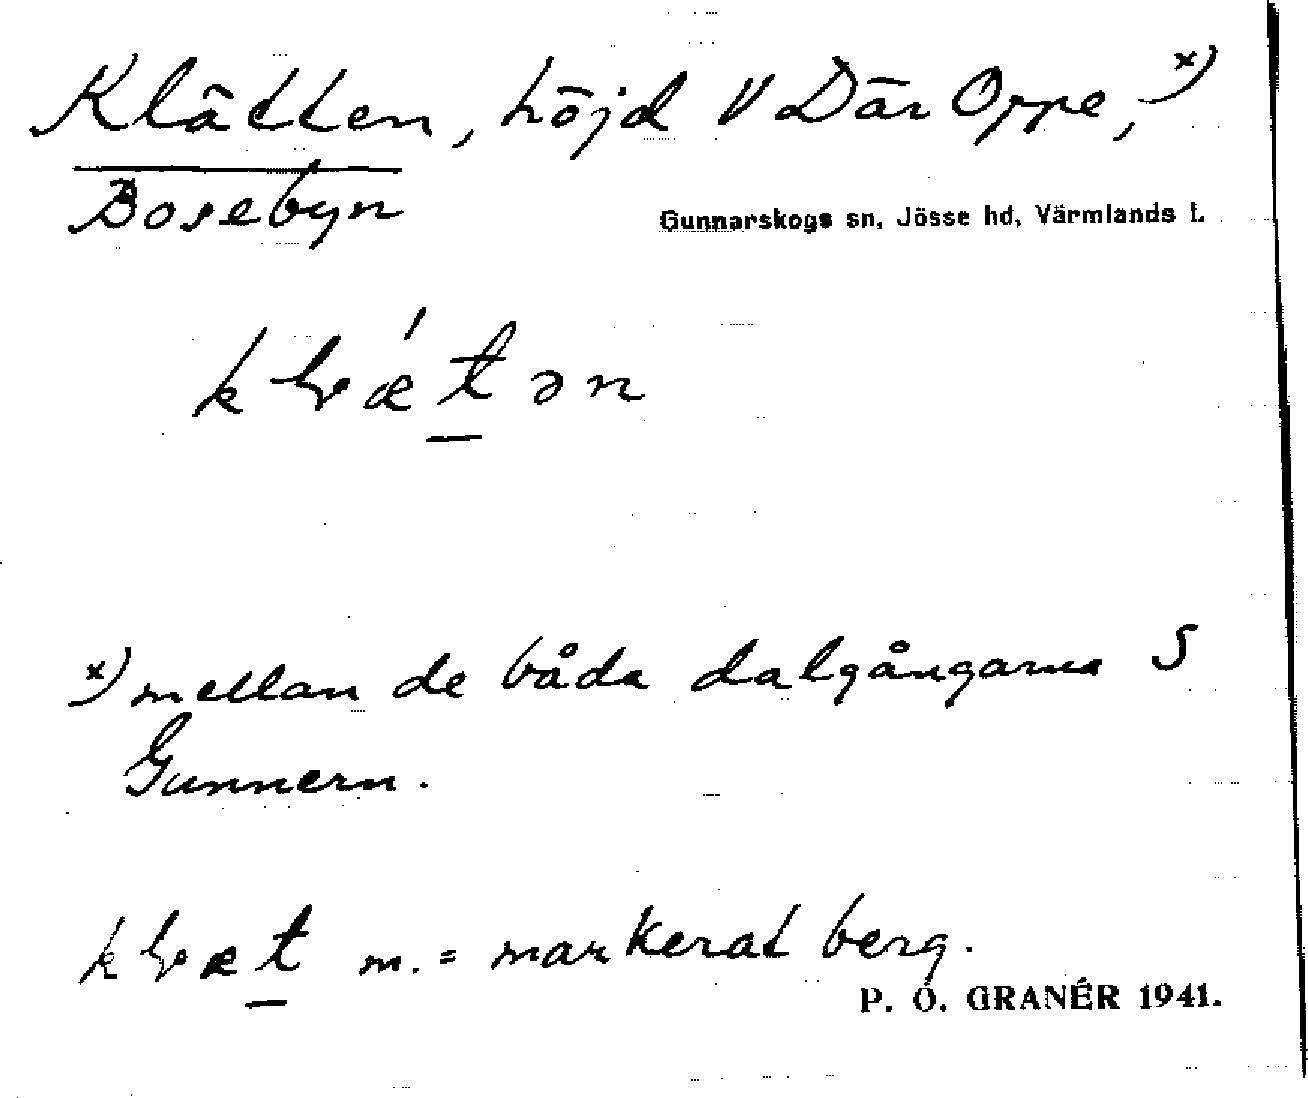 Klätten, höjd V Där Oppe, x)
Bosebyn
Gunnarskogs sn, Jösse hd, Värmlands l.
x) mellan de båda dalgångarna S
Gunnern.
m. = markerat berg.
P. O. GRANÉR 1941.